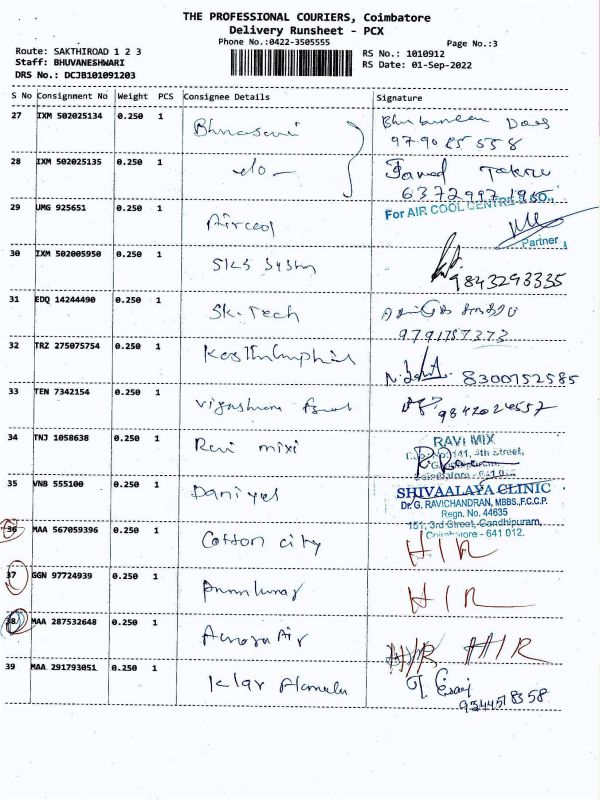 THE PROFESSIONAL COURIERS, Coimbatore
Delivery Runsheet - PCX
Phone No.:0422-3505555
Page No.:3
Route: SAKTHIROAD 1 2 3
RS No.: 1010912
Staff: BHUVANESHWARI
RS Date: 01-Sep-2022
DRS No.: DCJB101091203
S No Consignment No Weight PCS Consignee Details Signature
27 IXM 502025134 0.250 1
9790 85 558
28 IXM 502025135 0.250 1 -do-
6372997 1960
29 UMG 925651 0.250 1 Aircool
For AIR COOL CENTRE & CO.,
Partner
30 IXM 502005950 0.250 1 SKS System
9843293335
31 EDQ 14244490 0.250 1 SK. Tech
9791787373
32 TRZ 275075754 0.250 1
8300752585
33 TEN 7342154 0.250 1
9842026557
34 TNJ 1058638 0.250 1 Ravi mixi
RAVI MIX
141, 4th Street,
35 VNB 555100 0.250 1 Daniyel
SHIVAALAYA CLINIC
Dr. G. RAVICHANDRAN, MBBS.,F.C.C.P.
Regn. No. 44635
151, 3rd Street, Gandhipuram,
Coimbatore - 641 012.
36 MAA 567059396 0.250 1 Cotton city H/R
37 GGN 97724939 0.250 1 H/R
38 MAA 287532648 0.250 1 Aurora Air H/R H/R
39 MAA 291793051 0.250 1
9344518358